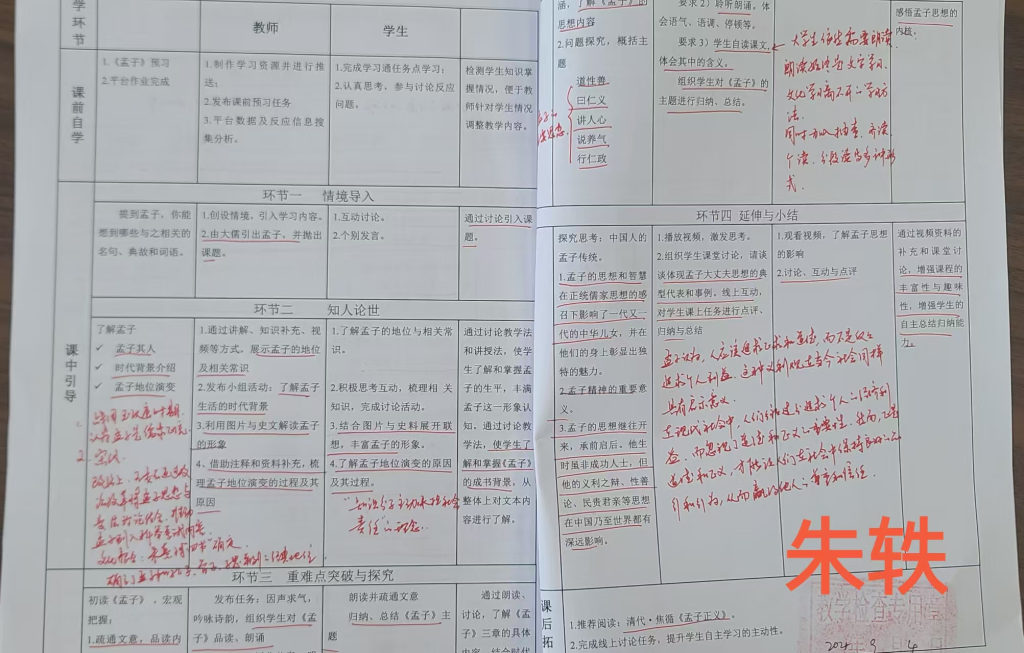 学
环
节
教师
学生
课
前
自
学
1.《孟子》预习
2.平台作业完成
1.制作学习资源并进行推
送；
2.发布课前预习任务
3.平台数据及反应信息搜
集分析。
1.完成学习通任务点学习；
2.认真思考、参与讨论反应
问题。
检测学生知识掌
握情况，便于教
师针对学生情况
调整教学内容。
课
中
引
导
环节一 情境导入
提到孟子，你能
想到哪些与之相关的
名句、典故和词语。
1.创设情境，引入学习内容。
2.由大儒引出孟子，并抛出
课题。
1.互动讨论。
2.个别发言。
通过讨论引入课
题。
环节二 知人论世
了解孟子
✓ 孟子其人
✓ 时代背景介绍
✓ 孟子地位演变
2. 宋代
1.通过讲解、知识补充、视
频等方式，展示孟子的地位
及相关常识
2.发布小组活动：了解孟子
生活的时代背景
3.利用图片与史文解读孟子
的形象
4、借助注释和资料补充，梳
理孟子地位演变的过程及其
原因
1.了解孟子的地位与相关常
识。
2.积极思考互动，梳理相 关
知识，完成讨论活动。
3.结合图片与史料展开联
想，丰富孟子的形象。
4.了解孟子地位演变的原因
及其过程。
"知识分子主动承担社会
责任"的理念
通过讨论教学法
和讲授法，使学
生了解和掌握孟
子的生平，丰满
孟子这一形象认
知。通过讨论教
学法，使学生了
解和掌握《孟子》
的成书背景，从
整体上对文本内
容进行了解。
环节三 重难点突破与探究
初读《孟子》，宏观
把握：
1.疏通文意，品读内
发布任务：因声求气，
吟咏诗韵，组织学生对《孟
子》品读、朗诵
朗读并疏通文意
归纳、总结《孟子》主
题
通过朗读、
讨论，了解《孟
子》三章的具体
内容，结合时代
涵，了解《孟子》的
思想内容
2.问题探究，概括主
题
道性善
曰仁义
讲人心
说养气
行仁政
要求 2）聆听朗诵，体
会语气、语调、停顿等。
要求 3）学生自读课文，
体会其中的含义。
组织学生对《孟子》的
主题进行归纳、总结。
大学生依然需要朗读
朗读始终是文学学习、
文化学习离不开的学习方
法。
同时加入抽查、齐读、
个读、分组读等多种形
式。
感悟孟子思想的
内核。
环节四 延伸与小结
探究思考：中国人的
孟子传统。
1.孟子的思想和智慧
在正统儒家思想的感
召下影响了一代又一
代的中华儿女，并在
他们的身上彰显出独
特的魅力。
2.孟子精神的重要意
义。
3.孟子的思想继往开
来，承前启后。他生
时虽非成功人士，但
他的义利之辩、性善
论、民贵君亲等思想
在中国乃至世界都有
深远影响。
1.播放视频，激发思考。
2.组织学生课堂讨论，请谈
谈体现孟子大丈夫思想的典
型代表和事例。线上互动，
对学生课上任务进行点评、
归纳与总结
1.观看视频，了解孟子思想
的影响
2.讨论、互动与点评
通过视频资料的
补充和课堂讨
论，增强课程的
丰富性与趣味
性，增强学生的
自主总结归纳能
力。
孟子认为，人应该追求正义和道德，而不是仅仅
追求个人利益。这种义利观在当今社会同样
具有启示意义。
在现代社会中，人们往往过分追求个人的经济利
益，而忽视了道德和正义的重要性。然而，只有
道德和正义，才能让人们在社会中保持良好的
引和行为，从而赢得他人的尊重和信任。
课
后
拓
1.推荐阅读：清代·焦循《孟子正义》。
2.完成线上讨论任务，提升学生自主学习的主动性。
朱轶
教学检查专用章
2024. 9. 4